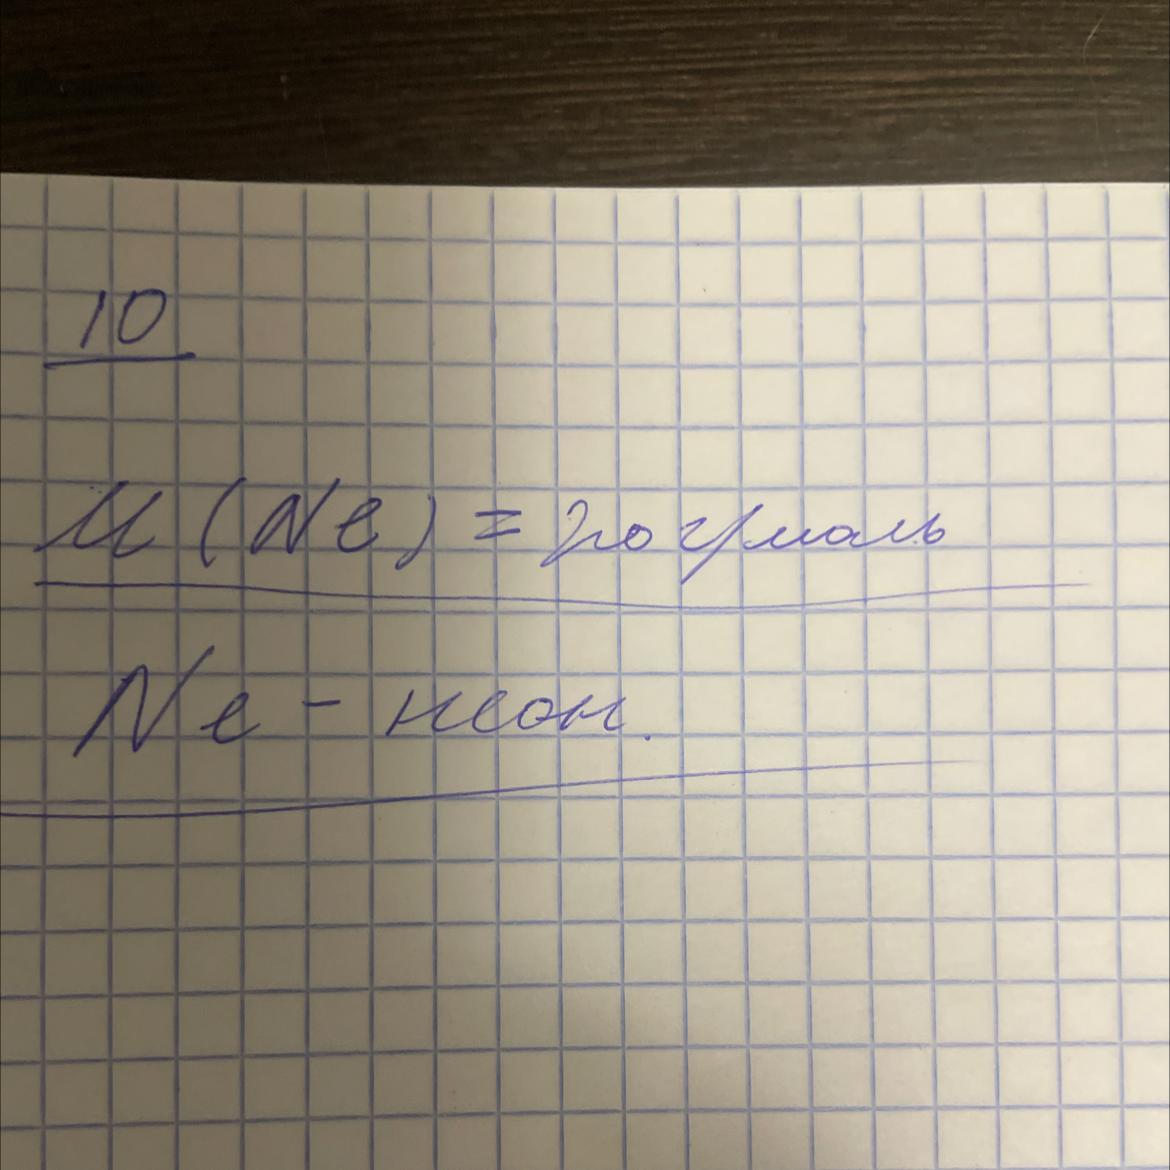 10
M (Ne) = 20 г/моль
Ne - неон.